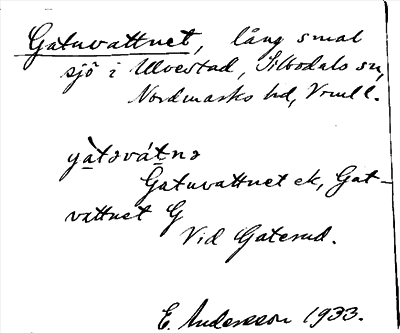 Gatuvattnet, lång smal
sjö i Ulvestad, Silbodals sn,
Nordmarks hd, Vrml.
gàtəvátnə
Gatuvattnet ek, Gat-
vattnet G
Vid Gaterud.
E. Andersson 1933.